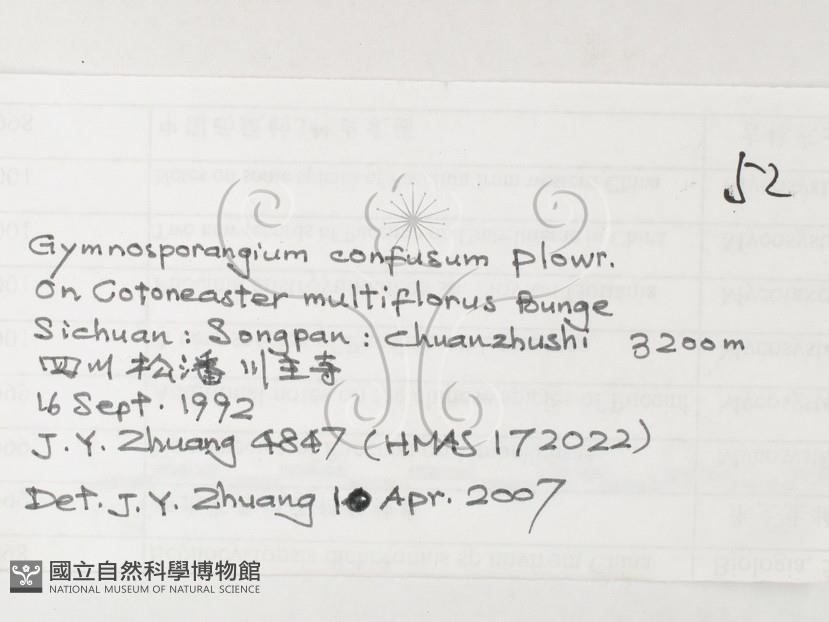 52
Gymnosporangium confusum Plowr.
On Cotoneaster multiflorus Bunge
Sichuan : Songpan : Chuanzhushi 3200m
四川松潘川主寺
16 Sept. 1992
J. Y. Zhuang 4847 (HMAS 172022)
Det. J. Y. Zhuang 10 Apr. 2007
國立自然科學博物館
NATIONAL MUSEUM OF NATURAL SCIENCE